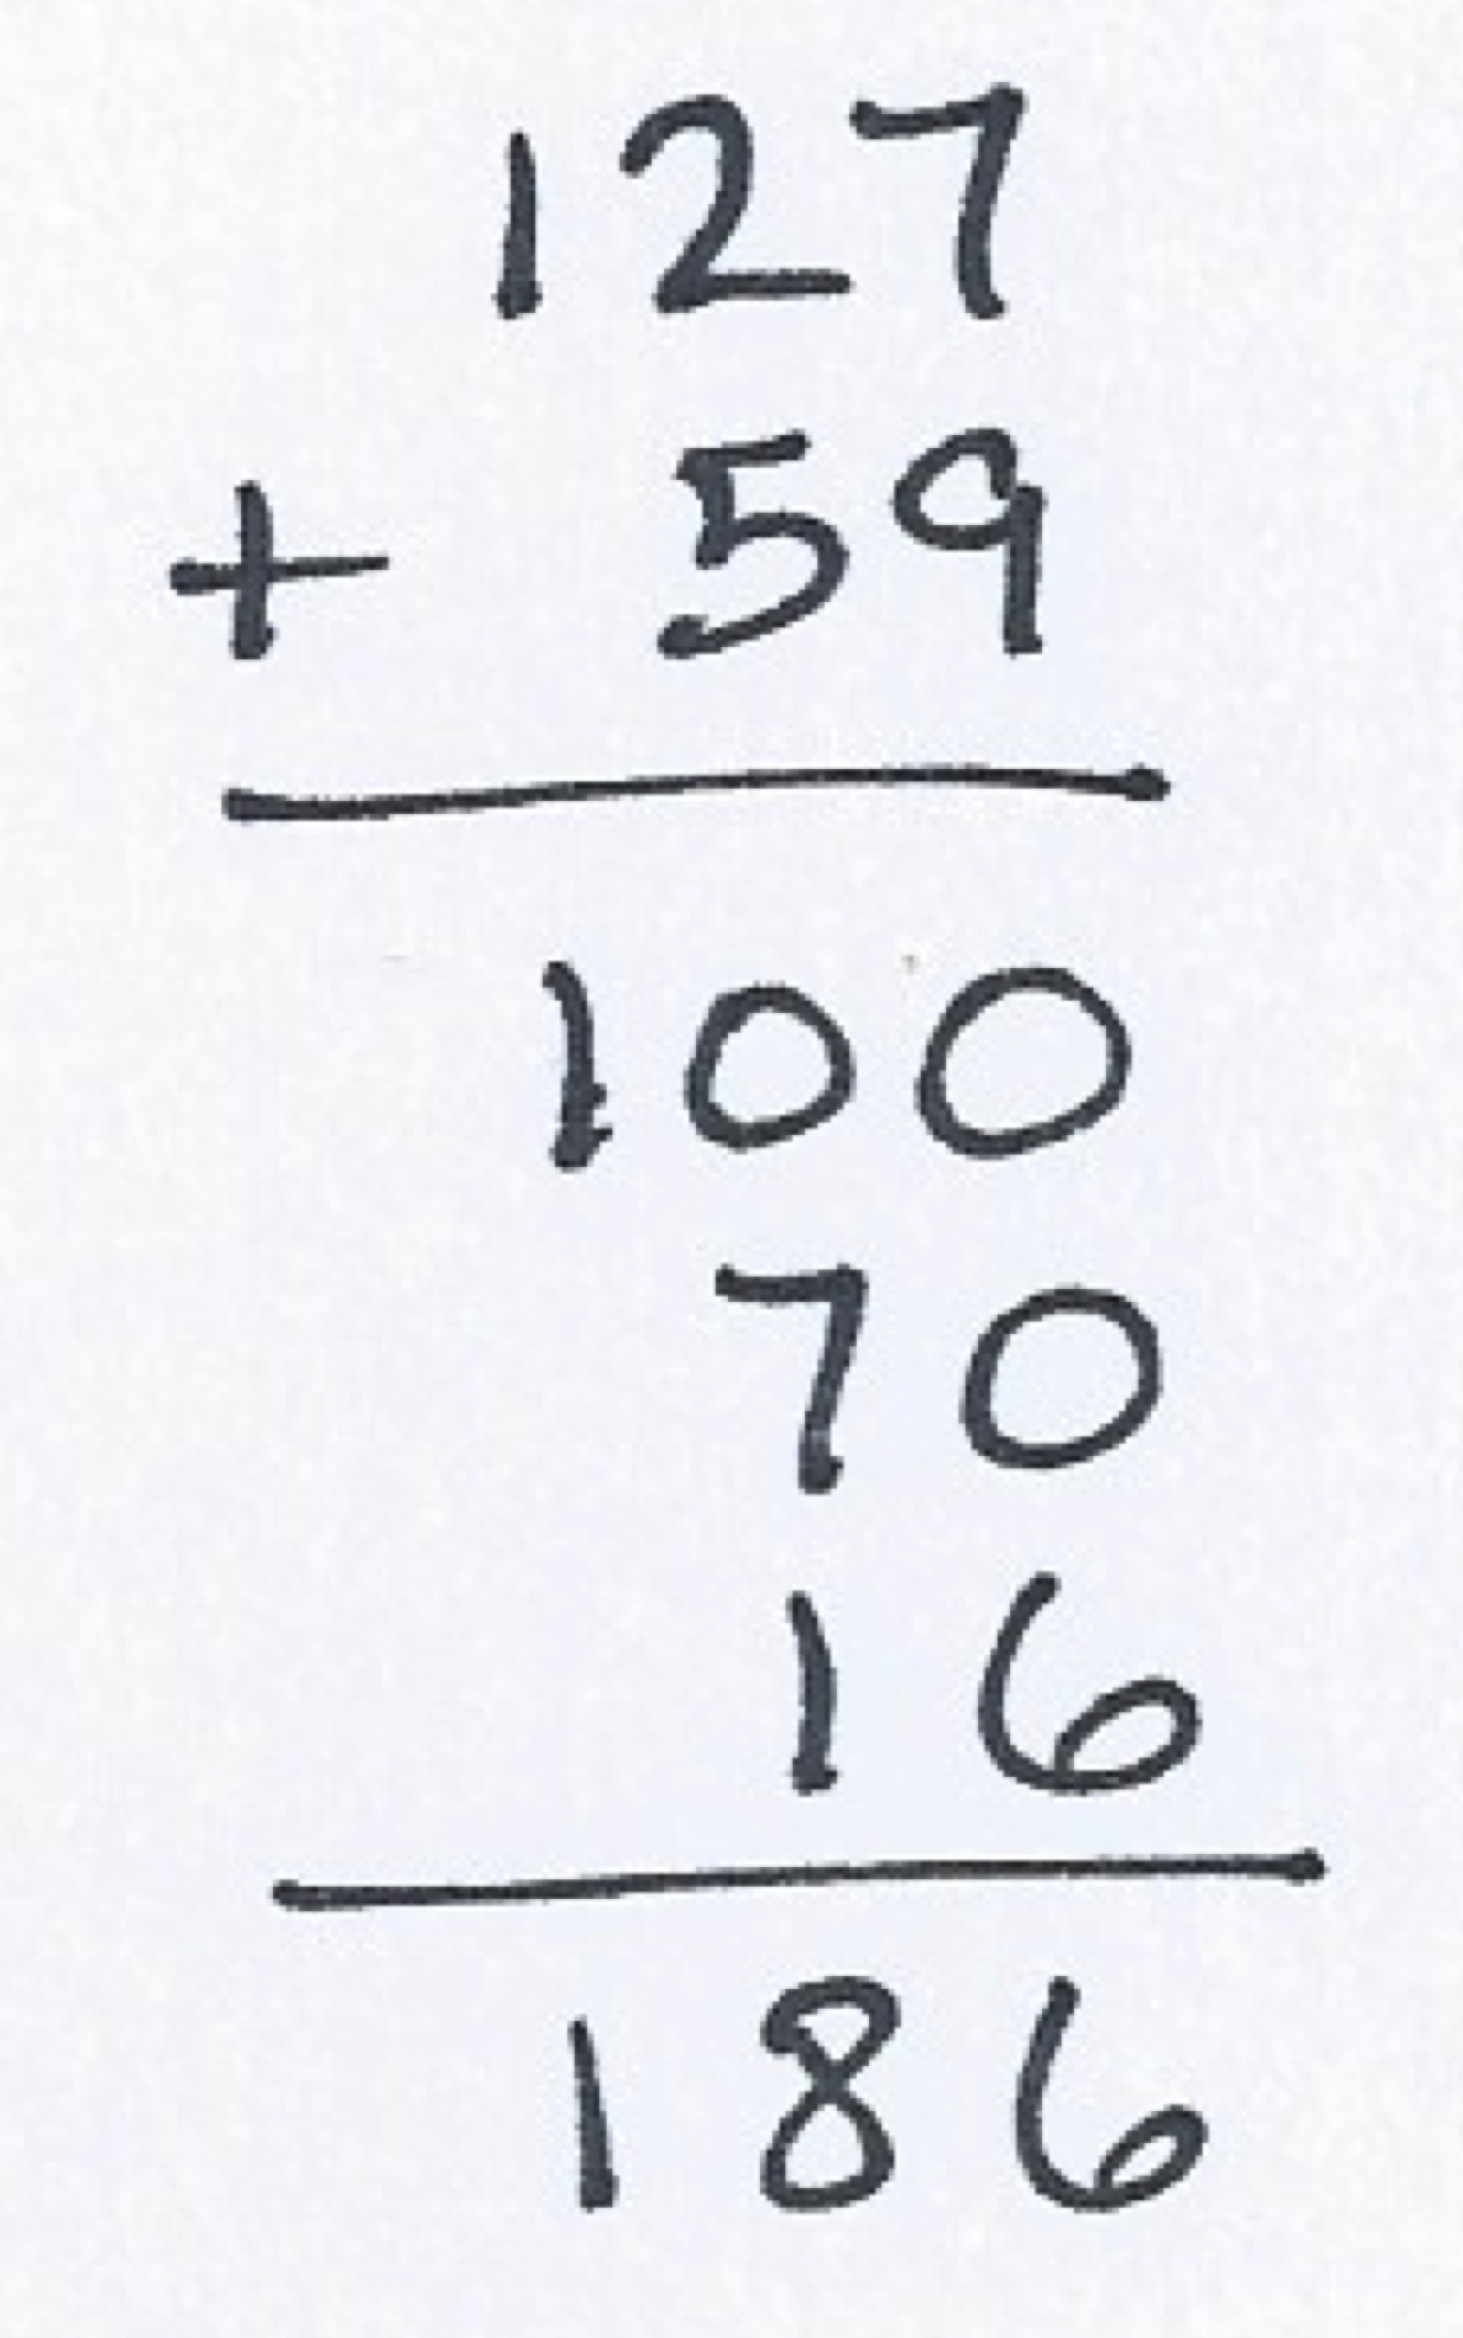 127
+ 59
100
70
16
186